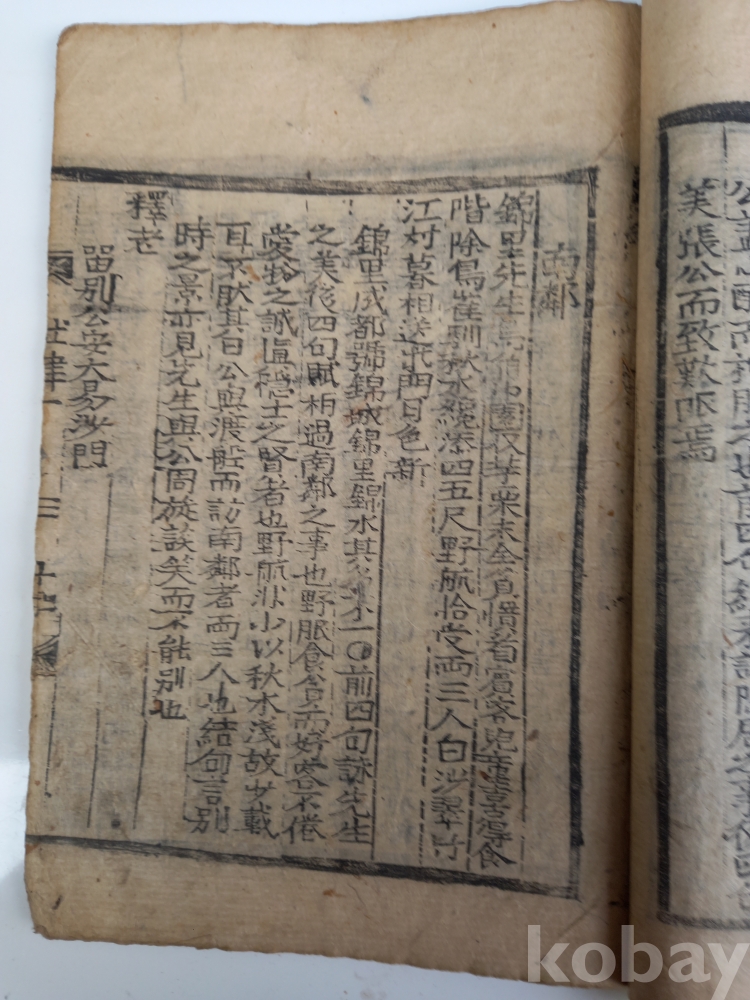 美張公而致歎㢤焉
南鄰
錦里先生烏角巾園收芋栗未全貧慣看賓客兒童喜得食
階除鳥雀馴秋水纔添四五尺野航恰受兩三人白沙翠竹
江村暮相送柴門月色新
錦里成都號錦城錦里錦水其名不一〇前四句詠先生
之美後四句賦相過南鄰之事也野服食貧而好客不倦
愛物之誠眞隱士之賢者也野航狀小以秋水淺故少載
耳不厭其日公與渡船而訪南鄰者兩三人也結句言別
時之景亦見先生與公周旋談笑而不能別也
釋老
留別公安大易沙門
杜律一
kobay